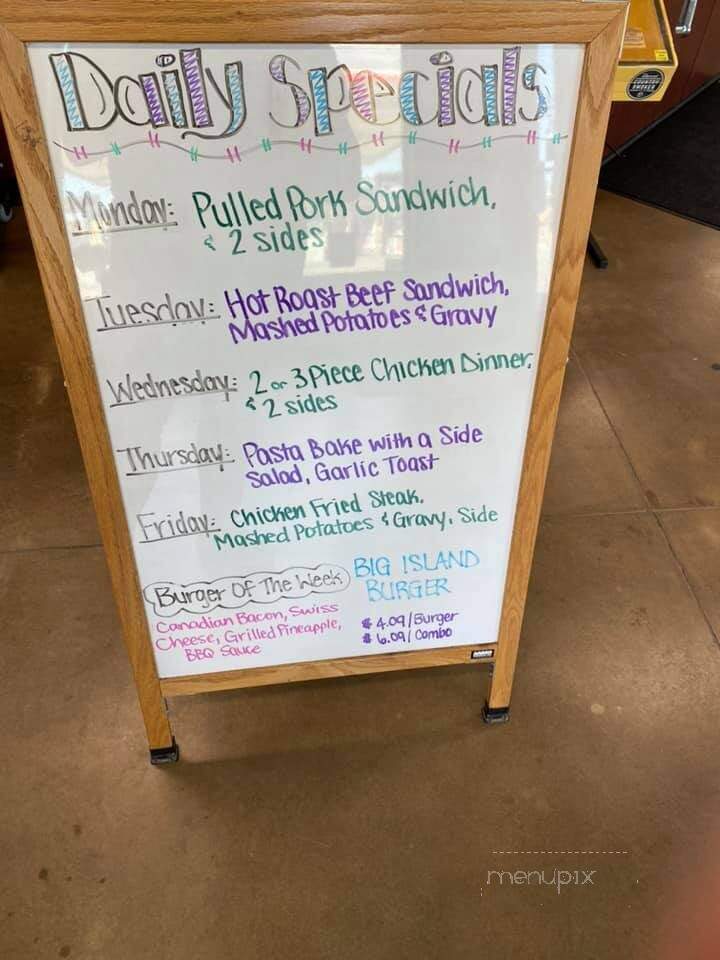 Daily Specials
Monday: Pulled Pork Sandwich,
& 2 sides
Tuesday: Hot Roast Beef Sandwich,
Mashed Potatoes & Gravy
Wednesday: 2 or 3 Piece Chicken Dinner,
& 2 sides
Thursday: Pasta Bake with a Side
Salad, Garlic Toast
Friday: Chicken Fried Steak,
Mashed Potatoes & Gravy, Side
Burger Of The Week
BIG ISLAND
BURGER
Canadian Bacon, Swiss
Cheese, Grilled Pineapple,
BBQ Sauce
$4.09/Burger
$6.09/Combo
menupix